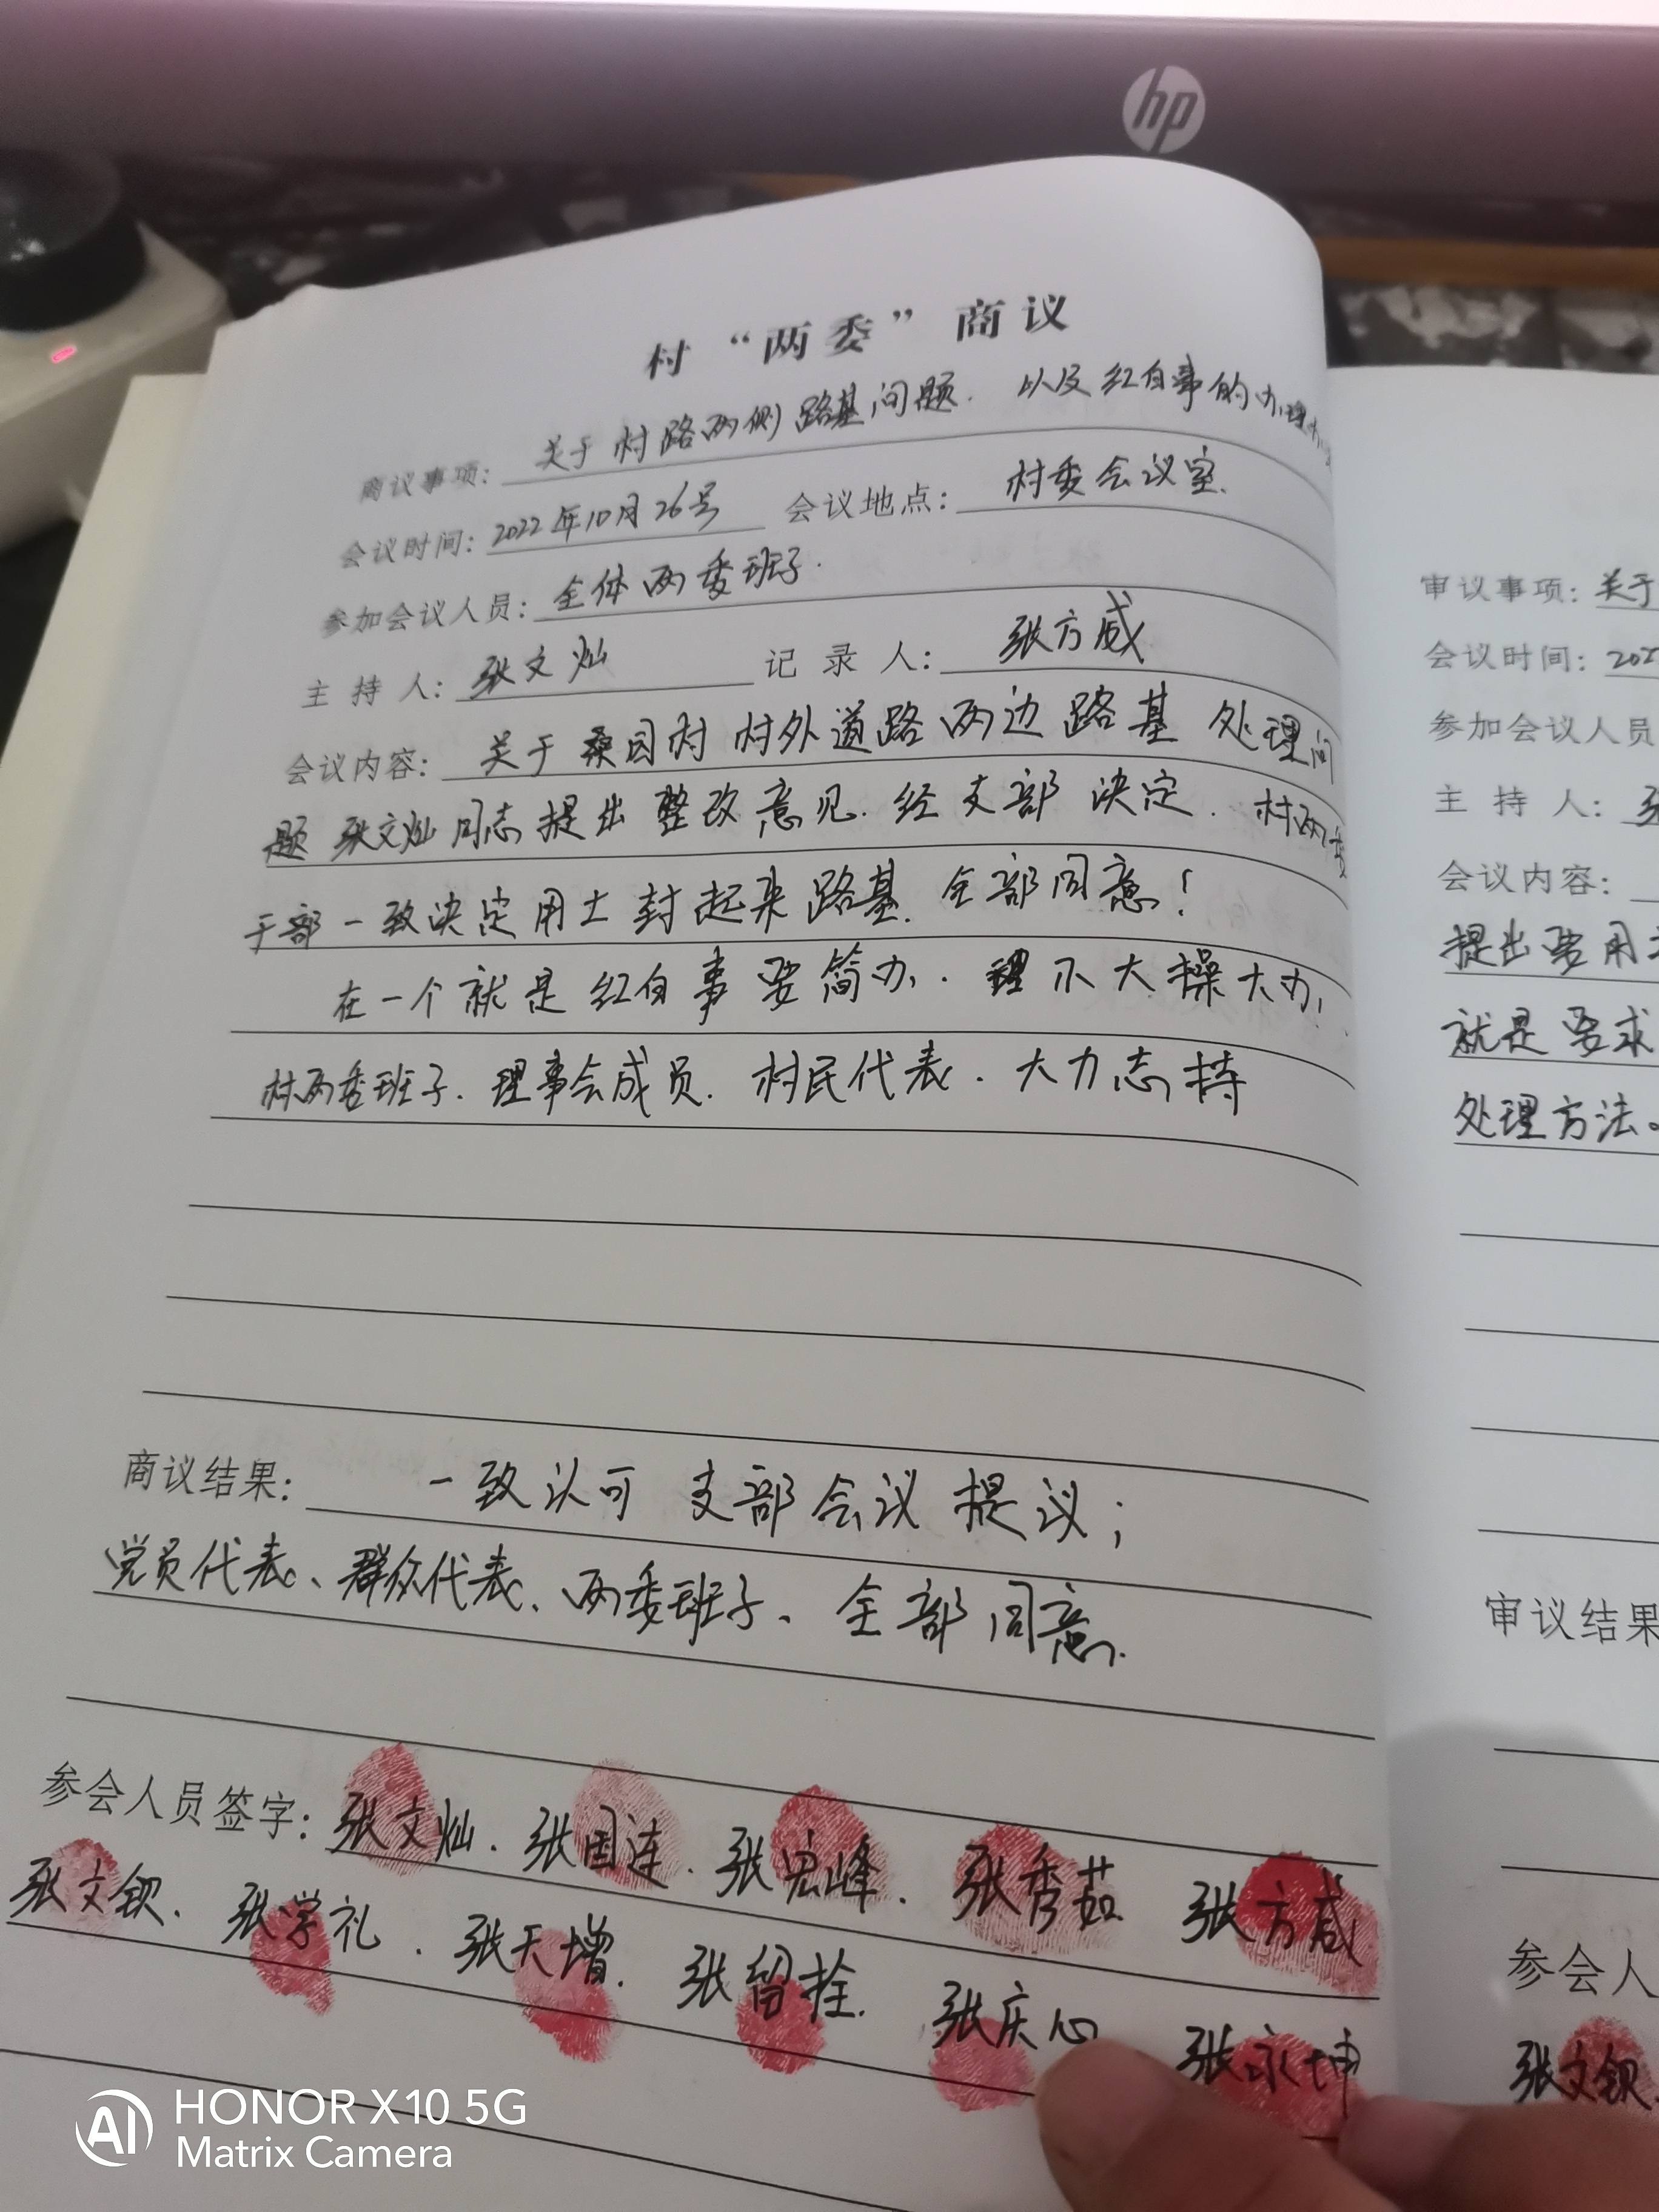 hp
村“两委”商议
商议事项: 关于村路两侧路基问题. 以及红白事的办理
会议时间: 2022年10月26号 会议地点: 村委会议室.
参加会议人员: 全体两委班子.
主持人: 张文灿 记录人: 张方威
会议内容: 关于桑园村村外道路两边路基处理问
题 张文灿同志提出整改意见. 经支部决定. 村两委
干部一致决定用土封起来路基. 全部同意!
在一个就是红白事要简办. 不大操大办,
村两委班子. 理事会成员. 村民代表. 大力志持
商议结果: 一致认可支部会议提议;
党员代表、群众代表、两委班子、全部同意.
参会人员签字: 张文灿. 张国连. 张宏峰. 张秀茹 张方威
张文钦. 张学礼. 张天增. 张留拴. 张庆心 张永坤
审议事项: 关于
会议时间: 202
参加会议人员
主持人: 张
会议内容:
提出要用
就是要求
处理方法。
审议结果
参会人
张文钦.
AI HONOR X10 5G
Matrix Camera